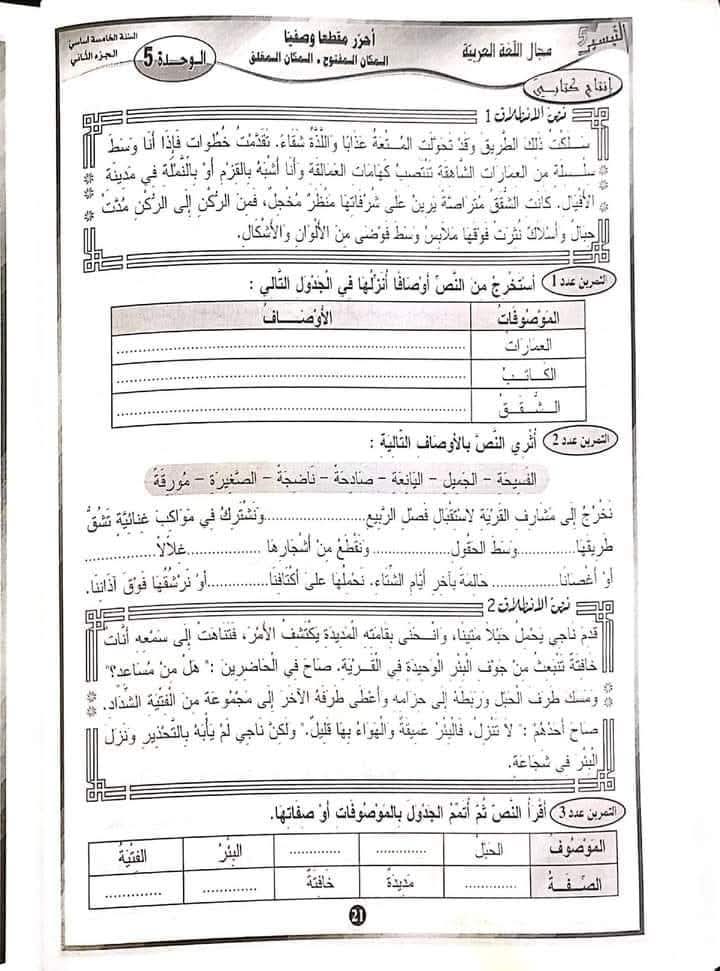 التيسير
مجال اللغة العربية
أحرر مقطعا وصفيا
المكان المفتوح - المكان المغلق
الوحدة 5
السنة الخامسة أساسي
الجزء الثاني
إنتاج كتابي
نص الانطلاق 1
سَلَكْتُ ذَلِكَ الطَّرِيقَ وَقَدْ تَحَوَّلَتِ الْمُتْعَةُ عَذَابًا وَاللَّذَّةُ شَقَاءً. تَقَدَّمْتُ خُطُوَاتٍ فَإِذَا أَنَا وَسَطَ
سِلْسِلَةٍ مِنَ الْعِمَارَاتِ الشَّاهِقَةِ تَنْتَصِبُ كَهَامَاتِ الْعَمَالِقَةِ وَأَنَا أَشْبَهُ بِالْقَزْمِ أَوْ بِالنَّمْلَةِ فِي مَدِينَةِ
الْأَفْيَالِ. كَانَتِ الشُّقَقُ مُتَرَاصَّةً يَرِينُ عَلَى شُرُفَاتِهَا مَنْظَرٌ مُخْجِلٌ، فَمِنَ الرُّكْنِ إِلَى الرُّكْنِ مُدَّتْ
حِبَالٌ وَأَسْلَاكٌ نُثِرَتْ فَوْقَهَا مَلَابِسُ وَسَطَ فَوْضَى مِنَ الْأَلْوَانِ وَالْأَشْكَالِ.
التمرين عدد 1 أَسْتَخْرِجُ مِنَ النَّصِّ أَوْصَافًا أُنْزِلُهَا فِي الْجَدْوَلِ التَّالِي :
المَوْصُوفَاتُ الأَوْصَافُ
العِمَارَاتُ ................
الكَاتِبُ ................
الشُّقَقُ ................
التمرين عدد 2 أُثْرِي النَّصَّ بِالأَوْصَافِ التَّالِيَةِ :
الفَسِيحَةِ - الجَمِيلِ - اليَانِعَةَ - صَادِحَةً - نَاضِجَةً - الصَّغِيرَةِ - مُورِقَةً
نَخْرُجُ إِلَى مَشَارِفِ الْقَرْيَةِ لِاسْتِقْبَالِ فَصْلِ الرَّبِيعِ................وَنَشْتَرِكُ فِي مَوَاكِبَ غِنَائِيَّةٍ تَشُقُّ
طَرِيقَهَا................وَسَطَ الحُقُولِ................وَنَقْطَعُ مِنْ أَشْجَارِهَا ................غِلَالًا................
أَوْ أَغْصَانًا................ حَالِمَةً بِآخِرِ أَيَّامِ الشِّتَاءِ. نَحْمِلُهَا عَلَى أَكْتَافِنَا................أَوْ نَرْشُقُهَا فَوْقَ آذَانِنَا.
نص الانطلاق 2
قَدِمَ نَاجِي يَحْمِلُ حَبْلًا مَتِينًا، وَانْحَنَى بِقَامَتِهِ الْمَدِيدَةِ يَكْتَشِفُ الْأَمْرَ، فَتَنَاهَتْ إِلَى سَمْعِهِ أَنَّاتٌ
خَافِتَةٌ تَنْبَعِثُ مِنْ جَوْفِ الْبِئْرِ الْوَحِيدَةِ فِي الْقَرْيَةِ. صَاحَ فِي الْحَاضِرِينَ :" هَلْ مِنْ مُسَاعِدٍ؟"
وَمَسَكَ طَرَفَ الْحَبْلِ وَرَبَطَهُ إِلَى حِزَامِهِ وَأَعْطَى طَرَفَهُ الْآخَرَ إِلَى مَجْمُوعَةٍ مِنَ الْفِتْيَةِ الشِّدَادِ.
صَاحَ أَحَدُهُمْ :" لَا تَنْزِلْ، فَالْبِئْرُ عَمِيقَةٌ وَالْهَوَاءُ بِهَا قَلِيلٌ." وَلَكِنَّ نَاجِي لَمْ يَأْبَهْ بِالتَّحْذِيرِ وَنَزَلَ
الْبِئْرَ فِي شَجَاعَةٍ.
التمرين عدد 3 أَقْرَأُ النَّصَّ ثُمَّ أُتَمِّمُ الْجَدْوَلَ بِالْمَوْصُوفَاتِ أَوْ صِفَاتِهَا.
المَوْصُوفُ الحَبْلُ ............ ............ البِئْرُ الفِتْيَةُ
الصِّفَةُ ............ مَدِيدَةٌ خَافِتَةٌ ............ ............
21